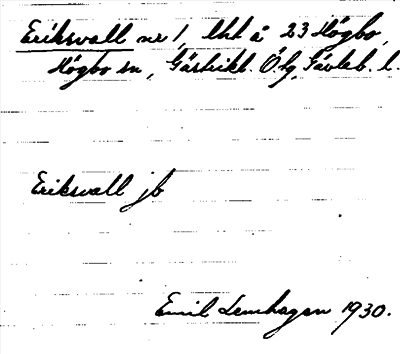 Eriksvall nr 1, lht å 23 Högbo,
Högbo sn, Gästrikl. Ö. tg, Gävleb. l.
Eriksvall jb
Emil Lemhagen 1930.